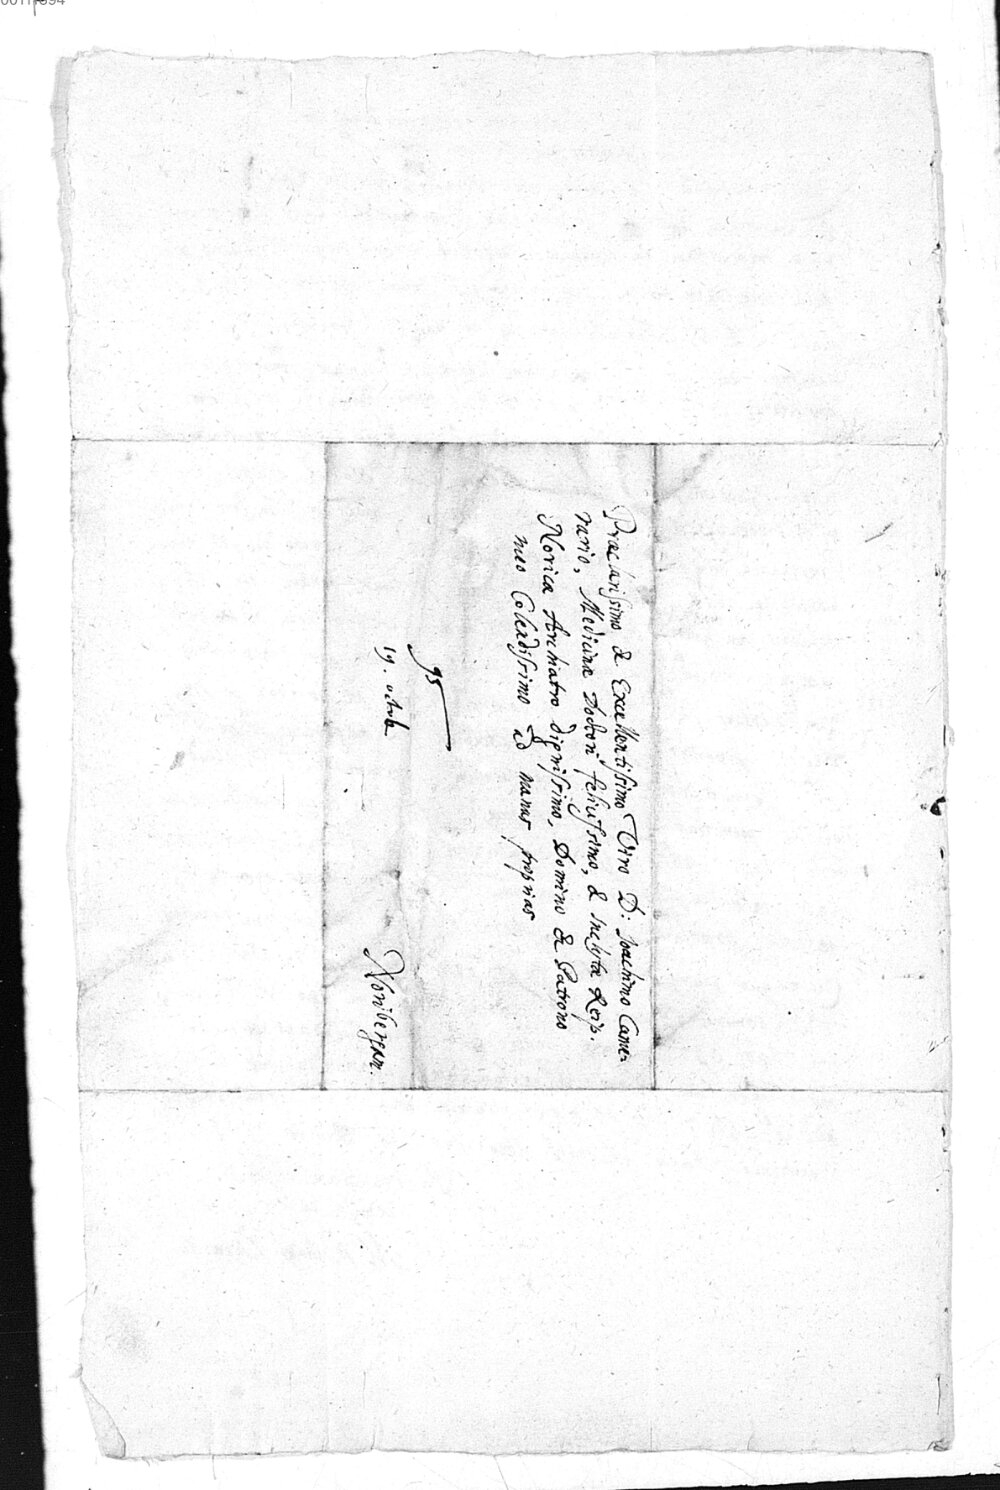 Præclarissimo & Excellentissimo Viro D: Joachimo Came-
rario, Medicinæ Doctori felicissimo, & inclytæ Reip.
Noricæ Archiatro dignissimo, Domino & Patrono
meo Colendissimo ad manus proprias
95
19. octob
Noribergam.